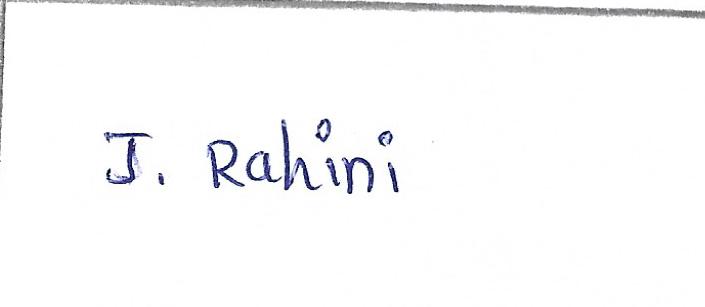 J. Rahini